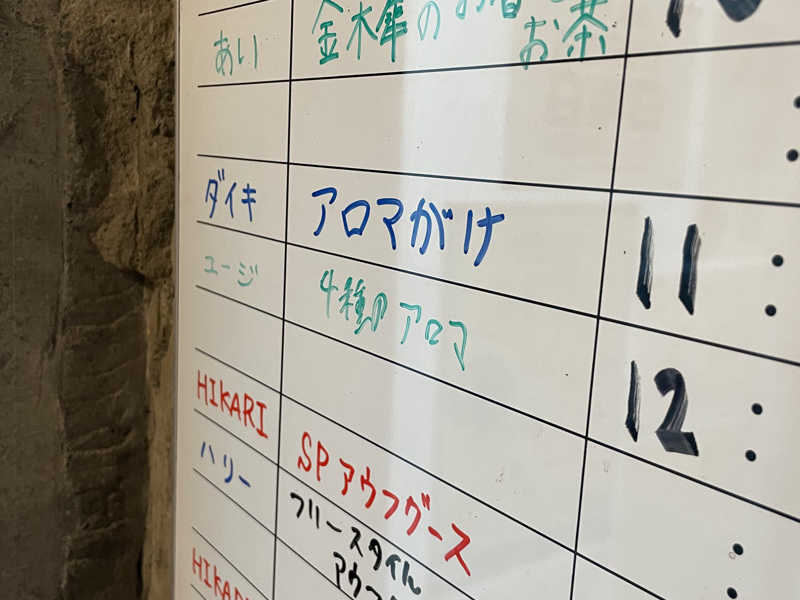 あい
金木犀の
お茶
ダイキ アロマがけ 11:
ユージ 4種のアロマ
12:
HIKARI SPアウフグース
ハリー フリースタイル
アウフ
HIKARI